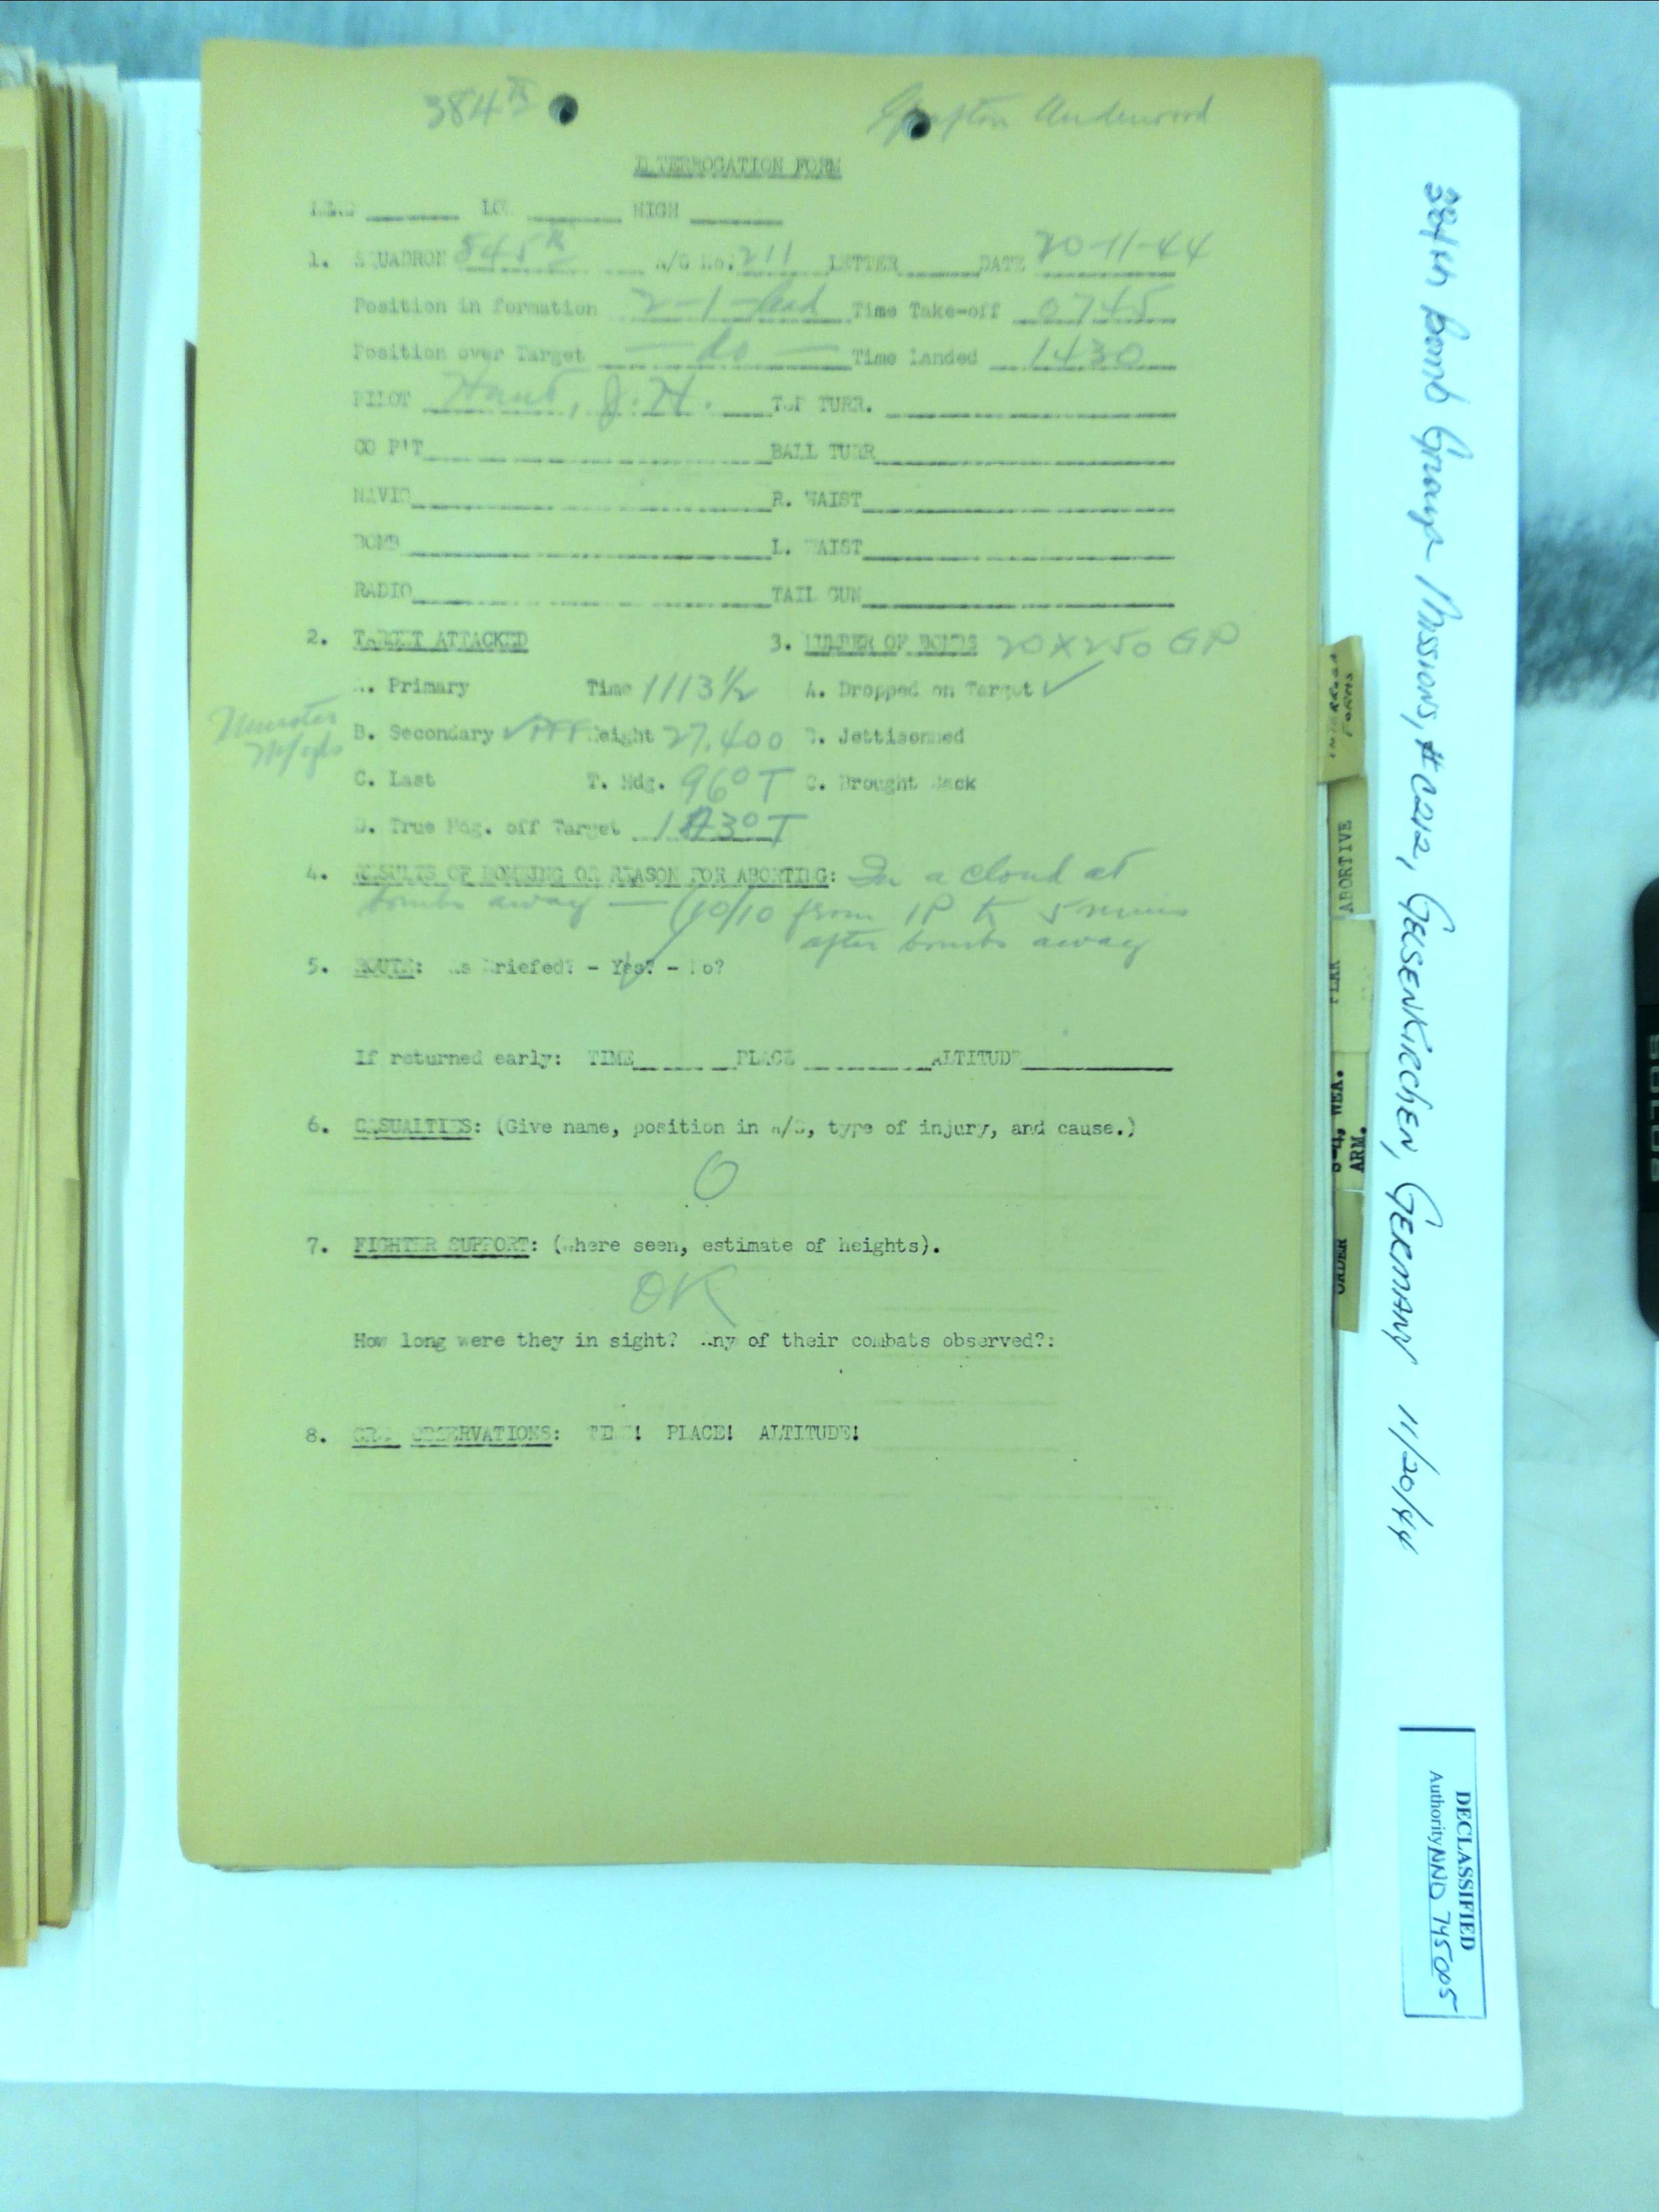 384th
Grafton Underwood
INTERROGATION FORM
LEAD LOW HIGH
1. SQUADRON 545th A/C No. 211 LETTER DATE 20-11-44
Position in formation 2-1-lead Time Take-off 0745
Position over Target — do — Time landed 1430
PILOT J.H. TOP TURR.
CO P'T BALL TURR
NAVIG R. WAIST
BOMB L. WAIST
RADIO TAIL GUN
2. TARGET ATTACKED 3. NUMBER OF BOMBS 20X250 GP
A. Primary Time 1113½ A. Dropped on Target ✓
Munster
B. Secondary ✓ PFF Height 27,400 B. Jettisonned
M/yds
C. Last T. Hdg. 96° T C. Brought Back
D. True Hdg. off Target
4. RESULTS OF BOMBING OR REASON FOR ABORTING: In a cloud at
bombs away — (10/10 from IP to 5 mins
after bombs away
5. ROUTE: As Briefed? - Yes? - No?
If returned early: TIME PLACE ALTITUDE
6. CASUALTIES: (Give name, position in A/C, type of injury, and cause.)
0
7. FIGHTER SUPPORT: (Where seen, estimate of heights).
OK
How long were they in sight? Any of their combats observed?:
8. OBSERVATIONS: TIME! PLACE! ALTITUDE!
INTERROG.
FORMS
ABORTIVE
FLAK
S-4, WEA.
ARM.
ORDER
384th Bomb Group Missions, #C212, GELSENKIRCHEN, GERMANY 11/20/44
DECLASSIFIED
Authority NND 745005